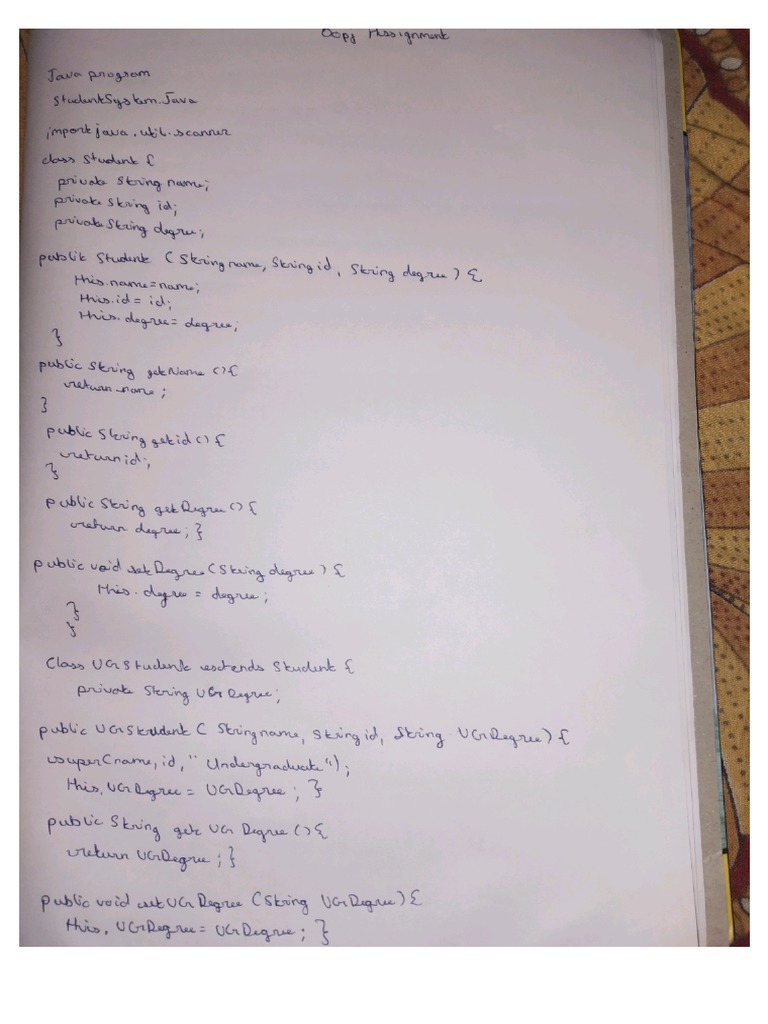 Oops Assignment
Java program
StudentSystem.Java
import java.util.scanner
class Student {
private String name;
private String id;
private String degree;
public Student (String name, String id, String degree) {
this.name=name;
this.id = id;
this.degree= degree;
}
public String getName () {
return name;
}
public String getid() {
return id;
}
public String getDegree () {
return degree; }
public void setDegree (String degree) {
this.degree = degree;
}
}
Class UGStudent extends Student {
private String UGDegree;
public UGStudent ( String name, String id, String UGDegree) {
super(name, id, "Undergraduate");
this.UGDegree = UGDegree ; }
public String get UG Degree () {
return UGDegree ; }
public void set UG Degree (String UGDegree) {
this. UGDegree = UGDegree ; }